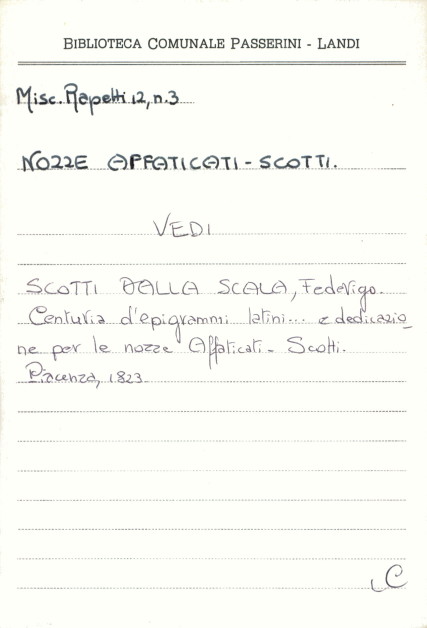 BIBLIOTECA COMUNALE PASSERINI - LANDI
Misc. Rapetti 12, n.3
NOZZE AFFATICATI - SCOTTI.
VEDI
SCOTTI DALLA SCALA, Federigo.
Centuria d'epigrammi latini... e dedicazio_
ne per le nozze Affaticati - Scotti.
Piacenza, 1823.
C